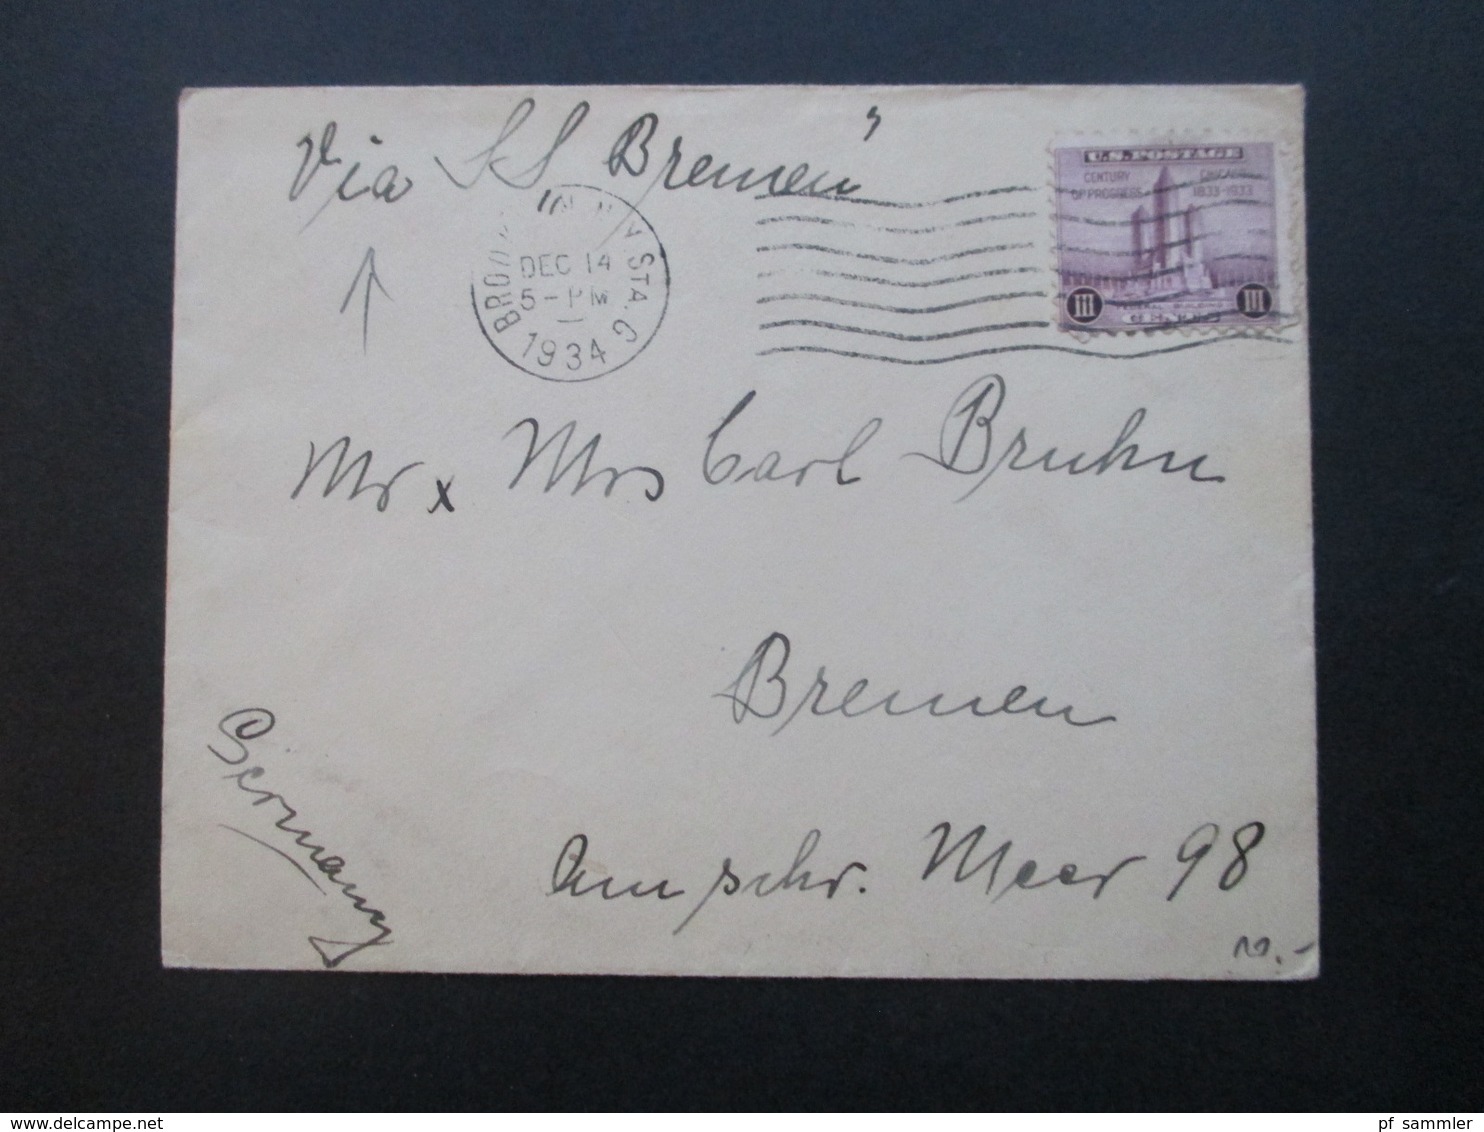 Via SS Bremen"
U.S. POSTAGE
CENTURY OF PROGRESS
CHICAGO 1833-1933
III
III
N.Y. STA. G
DEC 14
5-PM
1934
Mr x Mrs Carl Bruhn
Bremen
Germany
Am schr. Meer 98
www.delcampe.net
pf_sammler